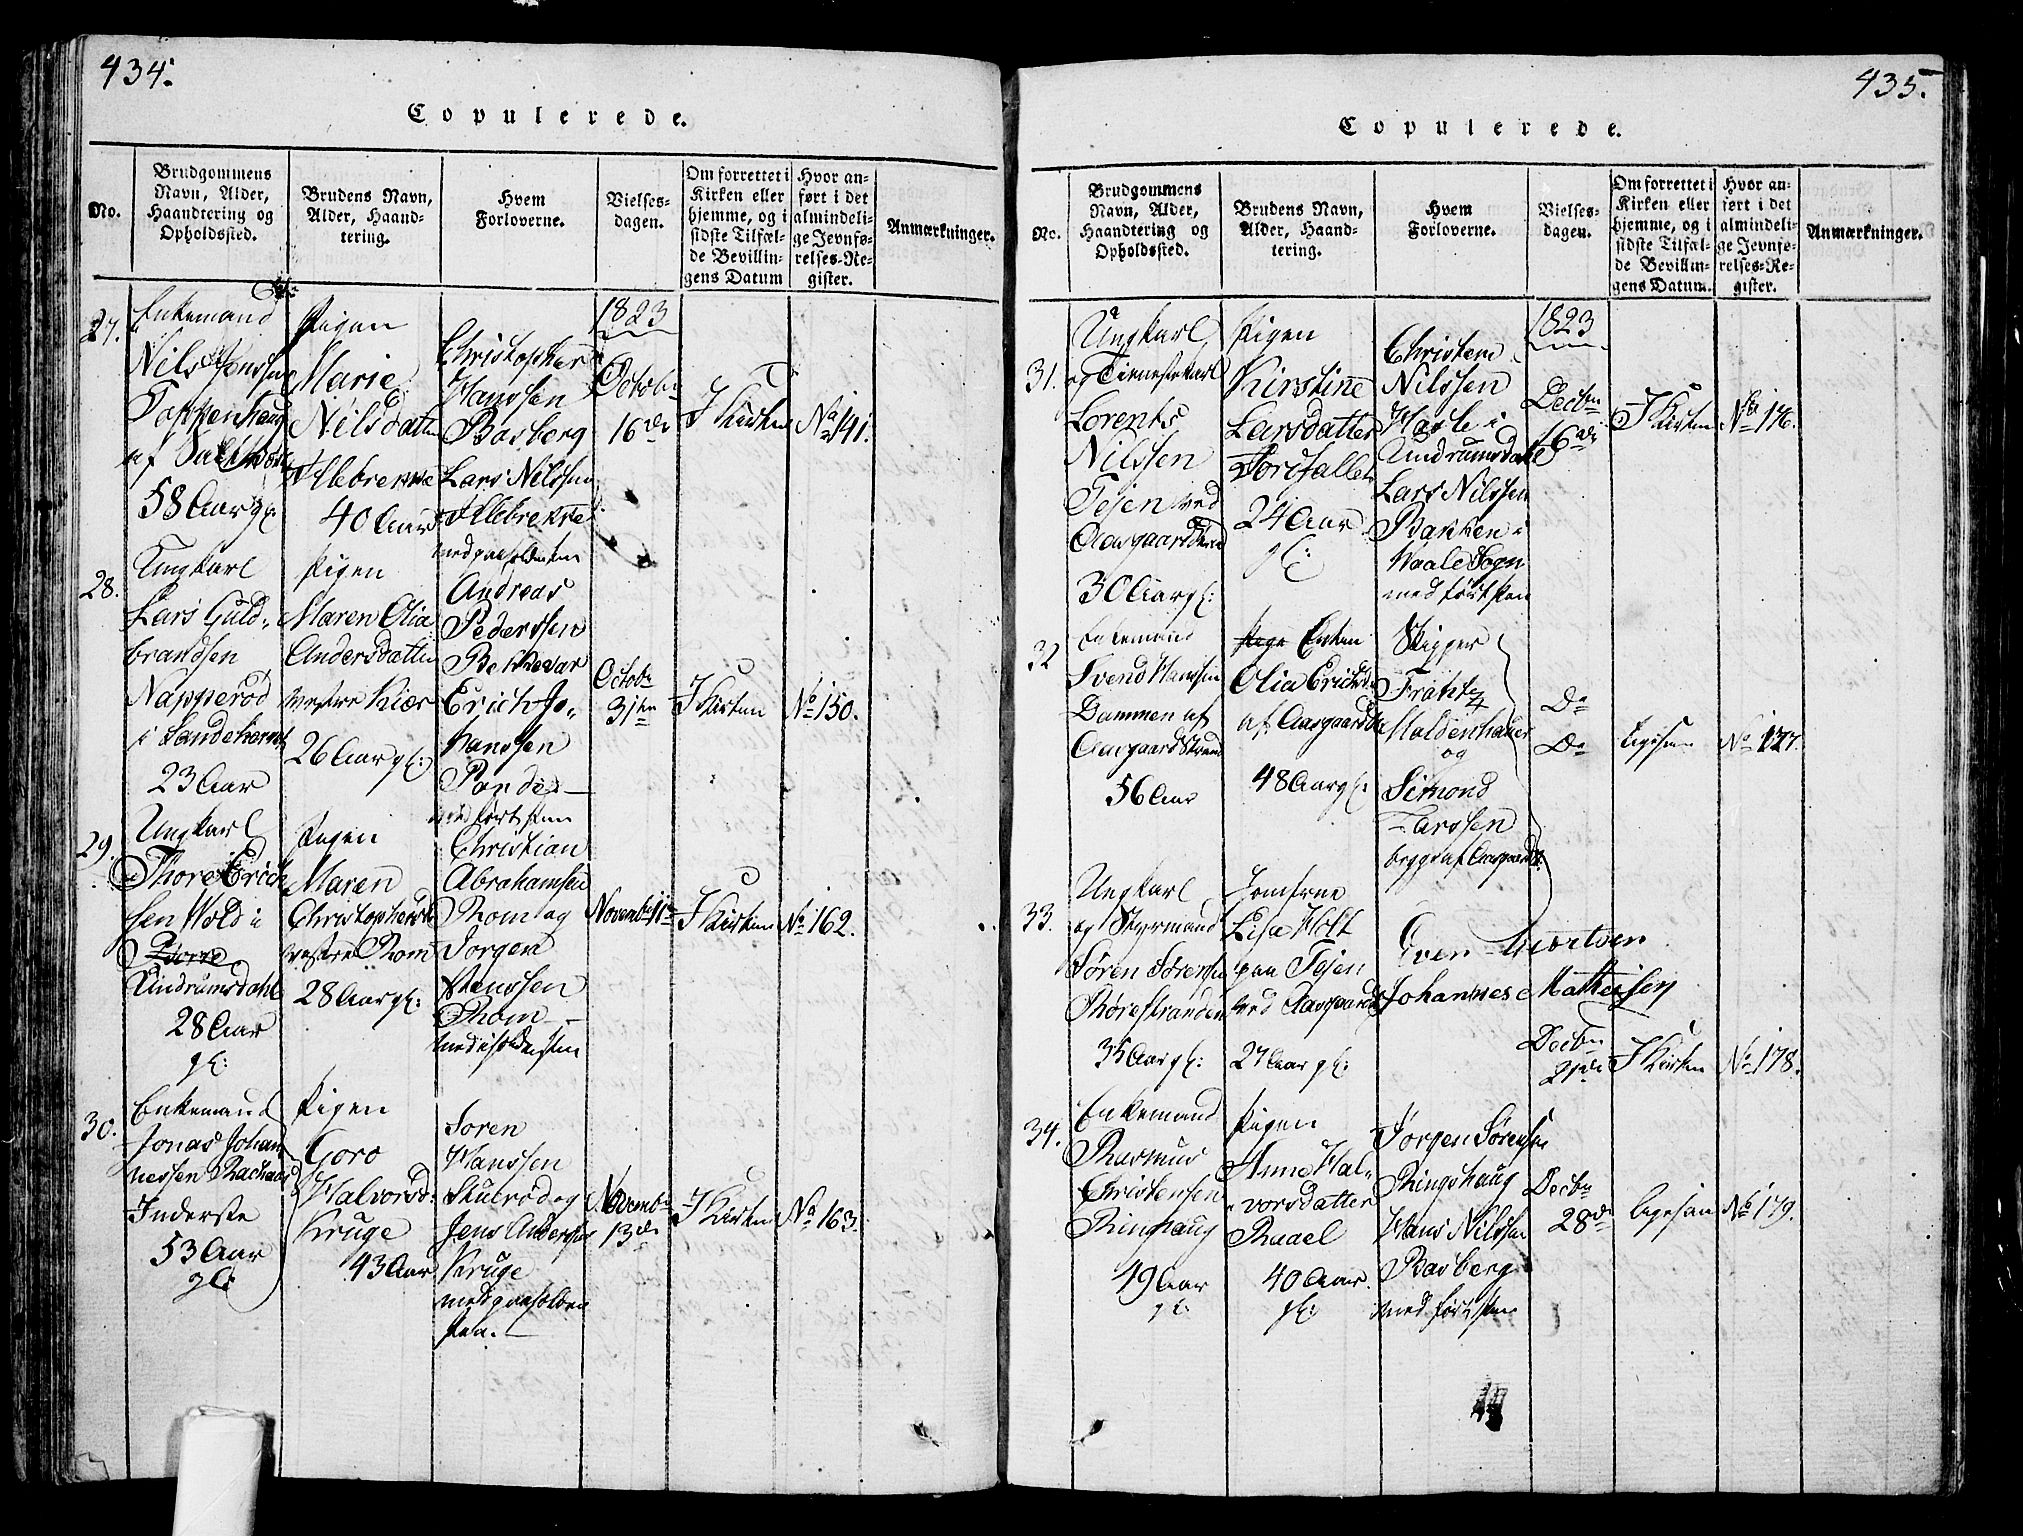 434.
Copulerede.
No.
Brudgommens Navn, Alder, Haandtering og Opholdssted.
Brudens Navn, Alder, Haandtering.
Hvem Forloverne.
Vielsesdagen.
Om forrettet i Kirken eller hjemme, og i sidste Tilfælde Bevillingens Datum
Hvor anført i det almindelige Jevnførelses-Register.
Anmærkninger.
27.
Enkemand
Nils Jonssen
af
58 Aar gl:
Pigen
Marie
Nilsdatter
Illebrekke
40 Aar
Christopher
Hanssen
Basberg
Lars Nilssen
Illebrekke
1823
Octobr
16de
I Kirken
No 141.
28.
Ungkarl
Lars Guld-
brandsen
Napperød
i Sandeherred
23 Aar
Pigen
Maren Olia
Andersdatter
westre Kiær
26 Aar gl:
Andreas
Pederssen
Bekkevar
Erich Jo-
hanssen
Octobr
31te
I Kirken
No 150.
29.
Ungkarl
Thore Erich
sen Wold i
Borre
Undrumsdahl
28 Aar
gl:
Pigen
Maren
Christophersd:
westre Rom
28 Aar gl:
Christian
Abrahamsen
Rom og
Jørgen
Hanssen
Rom
Novembr 11te
I Kirken
No 162.
30.
Enkemand
Jonas Johan
nessen
Inderste
53 Aar
gl:
Pigen
Goro
Halvorsd:
Kruge
43 Aar
Soren
Hanssen
Skulrød og
Jens Anderssen
Kruge
Novembr
13de
I Kirken
No 163.
435.
Copulerede.
No.
Brudgommens Navn, Alder, Haandtering og Opholdssted.
Brudens Navn, Alder, Haandtering.
Hvem Forloverne.
Vielsesdagen.
Om forrettet i Kirken eller hjemme, og i sidste Tilfælde Bevillingens Datum.
Hvor anført i det almindelige Jevnførelses-Register.
Anmærkninger.
31.
Ungkarl
og Tienestekarl
Lorents
Nilssen
Tejen ved
Aasgaardstrand
30 Aar gl:
Pigen
Kirstine
Larsdatter
24 Aar
gl:
Christen
Nilssen
Hasle i
Undrumsdahl
Lars Nilssen
Bakken i
Waale Sogn
1823
Decbr
16de
I Kirken
No 176.
32
Enkemand
Svend Hanssen
Dammen af
Aasgaardstrand
56 Aar
Pige Enken
Olia Erichsd:
af Aasgaardst:
48 Aar gl:
Skipper
Frantz
Moldenhauer
og
Simond
Larssen
begge af Aasgaards:
Do
Do
ligesaa
No 177.
33.
Ungkarl
og Styrmand
Søren Sørensen
Thorestranden
35 Aar gl:
Jomfrue
Lisa Holt
paa Tejen
ved Aasgaards:
27 Aar gl:
Even
Johannes Mathiesen
Decbr
21de
I Kirken
No 178.
34.
Enkemand
Rasmus
Christensen
Ringhaug
49 Aar
gl:
Pigen
Anne Hal-
vorsdatter
Ruael
40 Aar.
gl:
Jørgen Sørensen
Ringshaug
Hans Nilssen
Basberg
Decbr
28de
ligesaa
No 179.